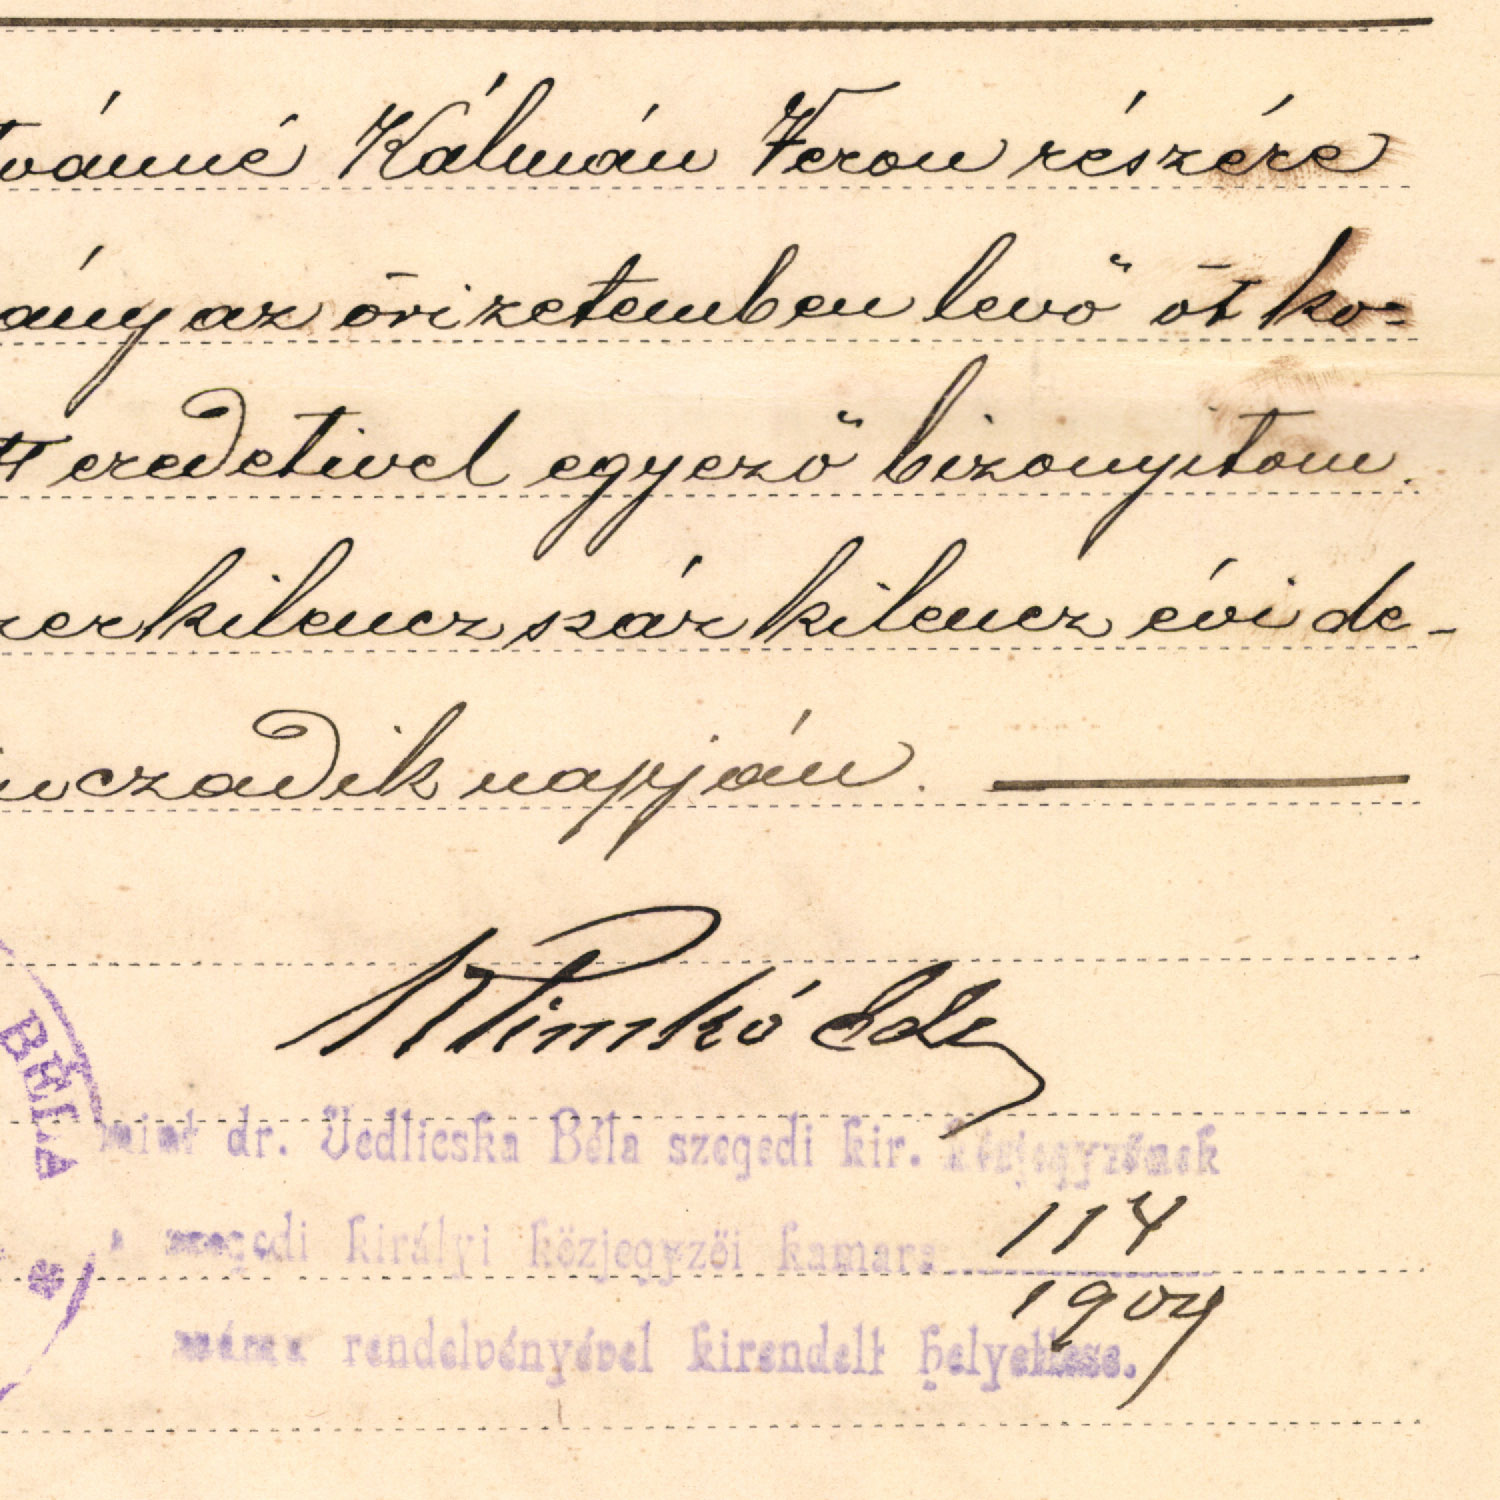 tvánné Kálmán Veron részére
ány az őrizetemben levő öt ko-
tt eredetivel egyező bizonyitom.
zerkilenczszáz kilencz évi de-
inczadik napján.
Klimkó
BÉLA
mint dr. Vedlicska Béla szegedi kir. közjegyzőnek
a szegedi királyi közjegyzői kamara 114
1904
száma rendelvényével kirendelt helyettese.